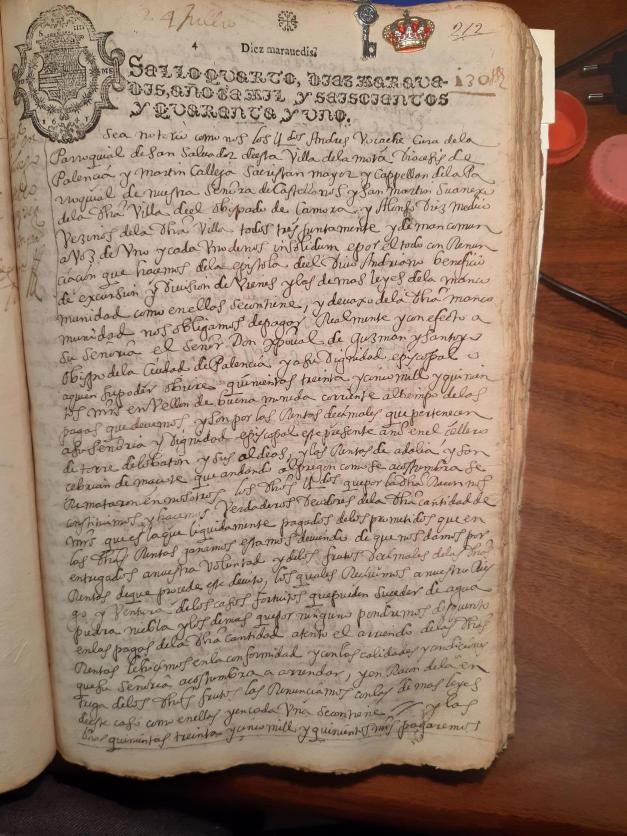 4 Jullio
212
4
Diez maravedis.
SELLO QVARTO, DIEZ MARAVE-
DIS, AÑO DE MIL Y SEISCIENTOS
Y QVARENTA Y VNO.
130
Sea notorio como nos los Andres cura de la
Parroquial de San Salvador desta Villa de la mota Diocesis de
Palencia y martin Calleja Sacristan mayor y Cappellan de la Pa
rroquial de nuestra Señora de Castellanos y San Martin su anexo
de la dha Villa del obispado de Çamora, y Alonso Diez medico
Vezinos de la dha Villa todos tres juntamente y de man comun
a voz de Uno y cada Uno de nos insolidum e por el todo con Renun
ciacion que hacemos de la epistola del Divo Adriano beneficio
de excursion y Division de Vienes y las demas leyes de la manco
munidad como en ellas se contiene, y devaxo de la dha manco
munidad nos obligamos de pagar Realmente y con efecto a
Su Señoria el Señor Don xpoual de Guzman y Santoyo
Obispo de la Ciudad de Palencia y a su Dignidad episcopal o
a quien su poder obiere quinientos treinta y cinco mill y quinien
tos mrs en Vellon de buena moneda corriente al tiempo de las
pagas que devemos, y son por las Rentas decimales que pertenecen
a su Señoria y dignidad episcopal este presente año en el cillero
de torre de lobaton y sus aldeas, y las Rentas de adalia, y San
cebrian de maçote que andando al pregon como se acostumbra se
Remataron en nosotros los dhos que por la dha Racon nos
constituimos y hacemos Verdaderos Deudores de la dha cantidad de
mrs que es la que liquidamente pagados de los prometidos que en
las dhas Rentas ganamos estamos deviendo de que nos damos por
entregados a nuestra Voluntad y de los frutos Decimales de las dhas
Rentas de que procede este devito, los quales Recivimos a nuestro Ries
go y Ventura de los casos fortuitos que pueden suceder de agua
piedra niebla y los demas que por ninguno pondremos descuento
en las pagas de la dha cantidad atento el arriendo de las dhas
Rentas hicimos en la conformidad y con las calidades y condiciones
que su Señoria acostumbra a arrendar, y en Racon de la en
trega de los dhos frutos las Renunciamos con las demas leyes
deste caso como en ellas y en cada Una se contiene y los
dhos quinientas treinta y cinco mill y quinientos mrs pagaremos